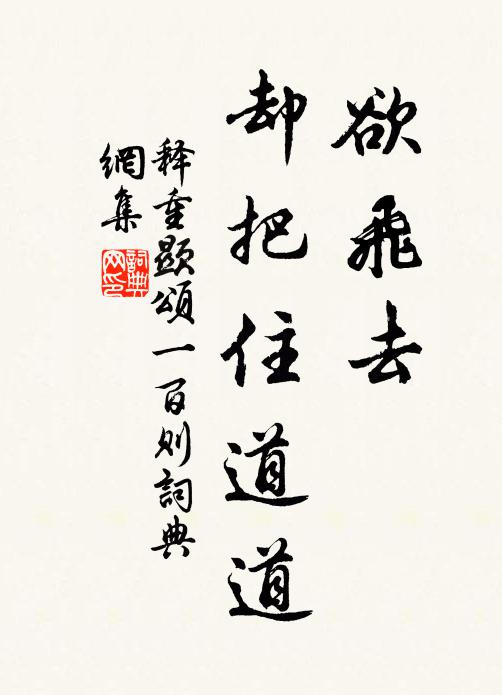 欲飛去
却把住道道
释重顯頌一百则詞典
網集
詞典
网印